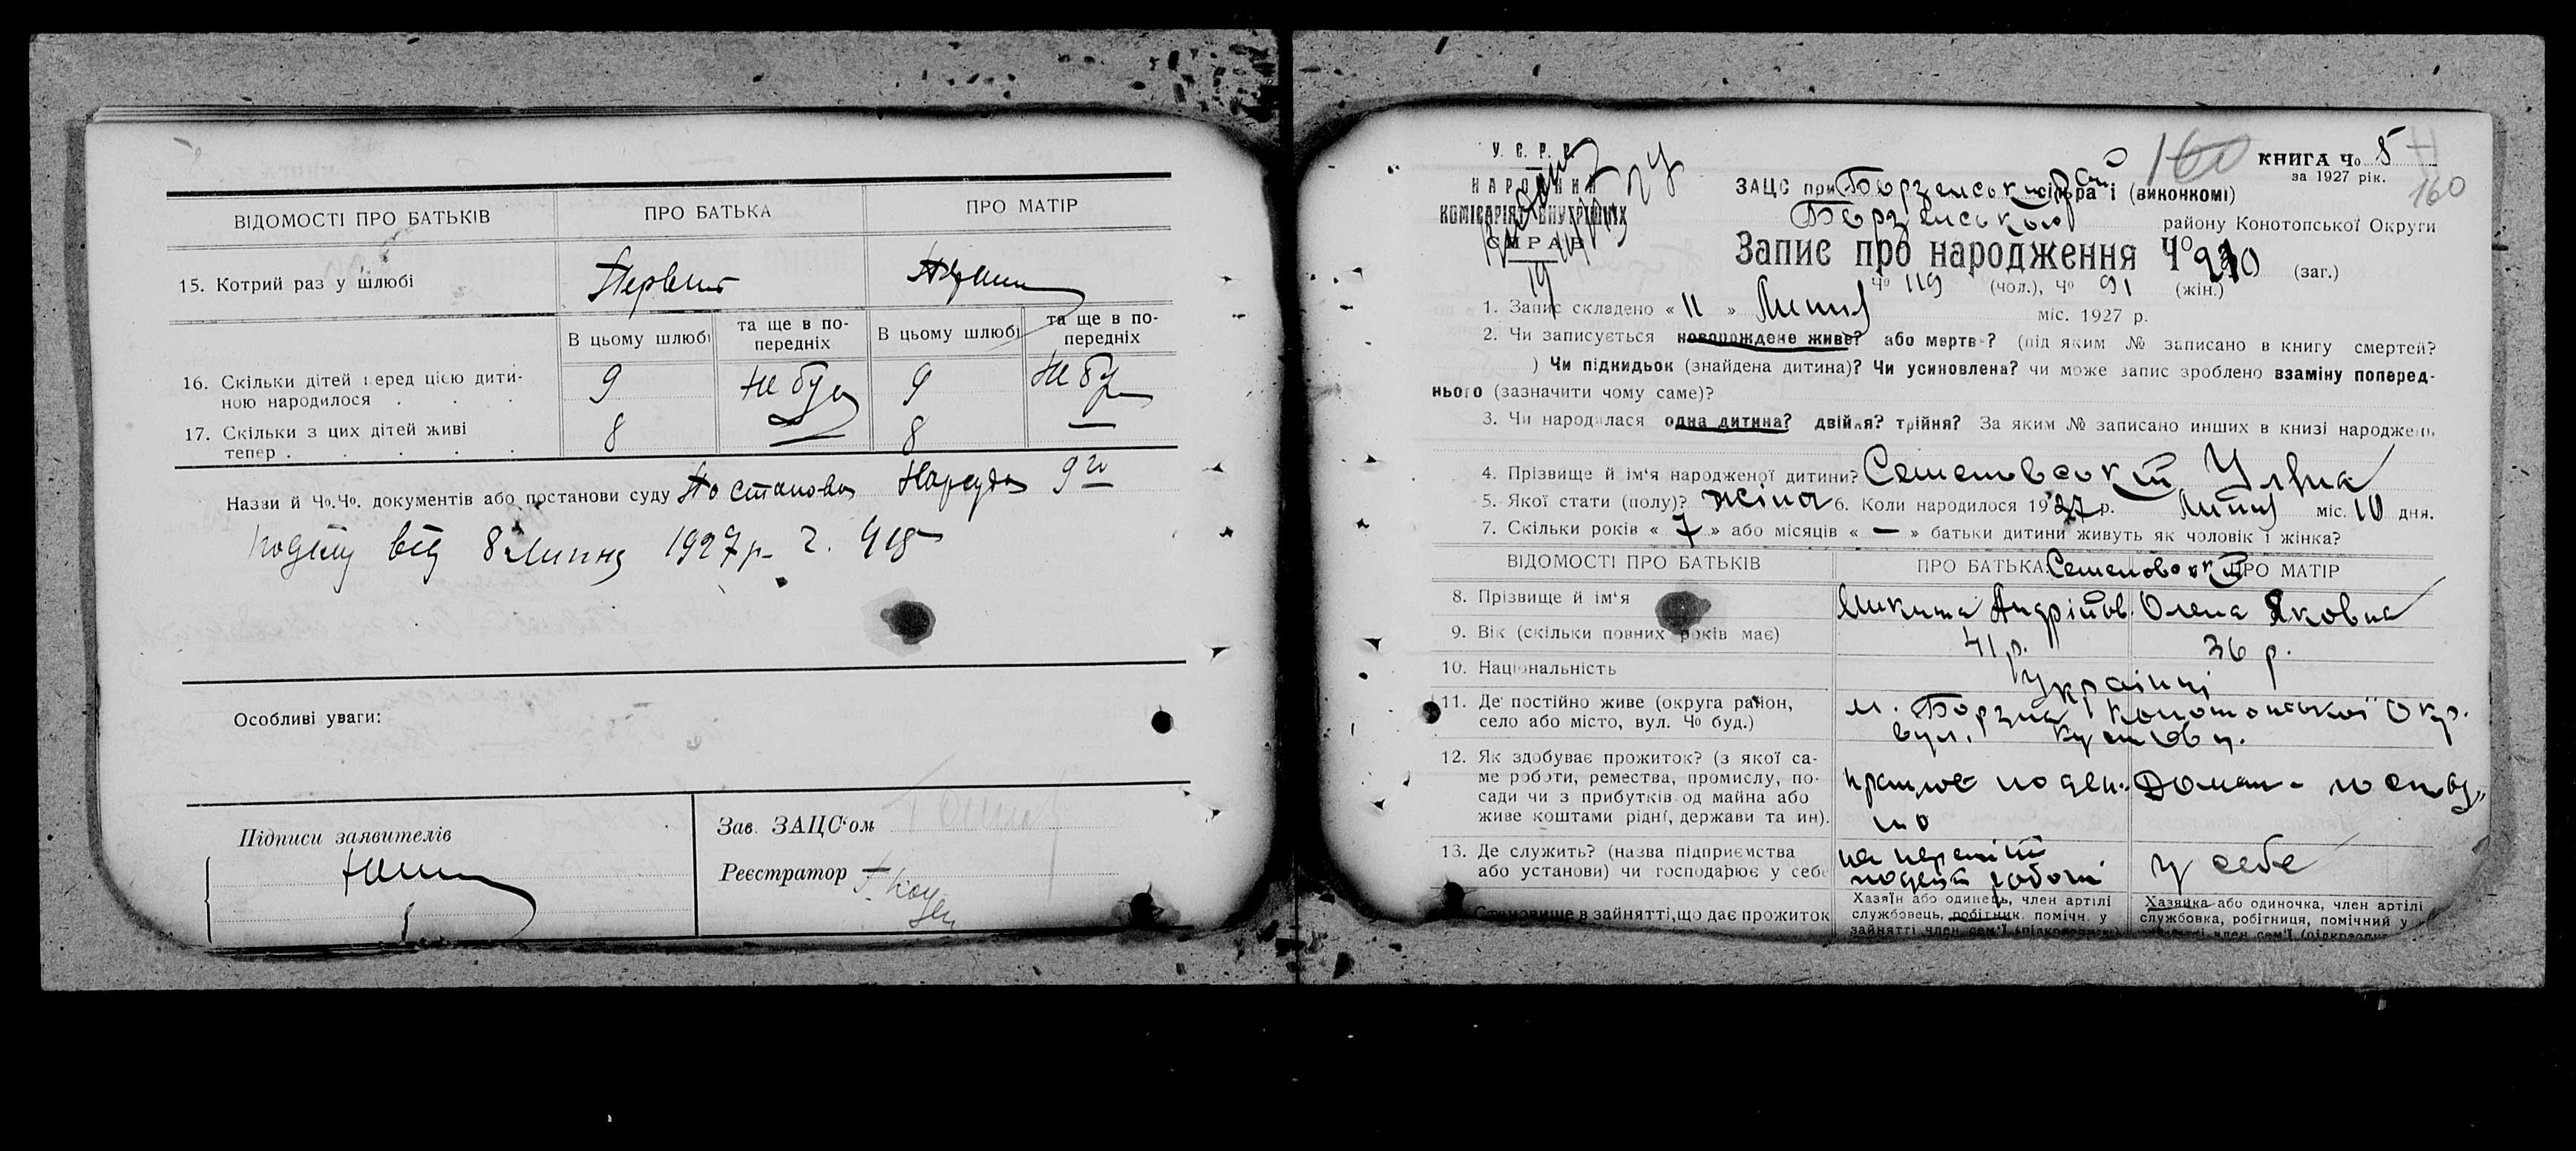 ВІДОМОСТІ ПРО БАТЬКІВ ПРО БАТЬКА ПРО МАТІР
15. Котрий раз у шлюбі
В цьому шлюбі та ще в по- В цьому шлюбі та ще в по-
передніх передніх
16. Скільки дітей перед цією дити- 9 не бул 9 не бу
ною народилося . . .
17. Скільки з цих дітей живі 8 — 8 —
тепер . . . . .
Назви й Ч⁰.Ч⁰. документів або постанови суду Постанова Нарсуда 9го
від 8 Липня 1927 р.
Особливі уваги:
Підписи заявителів
Зав. ЗАЦС'ом
Реєстратор
У. С. Р. Р.
НАРОДНИЙ
КОМІСАРІЯТ ВНУТРІШНІХ
СПРАВ
160 КНИГА Ч⁰ 8
за 1927 рік.
160
ЗАЦС при Борзенській сільраді (виконкомі)
Борзенського району Конотопської Округи
Запис про народження Ч⁰ 210 (заг.)
Ч⁰ 119 (чол.), Ч⁰ 91 (жін.)
1. Запис складено « 11 » Липня міс. 1927 р.
2. Чи записується новорождене живе? або мертве? (під яким № записано в книгу смертей?
) Чи підкидьок (знайдена дитина)? Чи усиновлена? чи може запис зроблено взаміну поперед-
нього (зазначити чому саме)?
3. Чи народилася одна дитина? двійня? трійня? За яким № записано инших в книзі народжень
4. Прізвище й ім'я народженої дитини? Семеновській Уляна
5. Якої стати (полу)? жіноч 6. Коли народилося 1927 р. Липня міс. 10 дня.
7. Скільки років « 7 » або місяців « — » батьки дитини живуть як чоловік і жінка?
ВІДОМОСТІ ПРО БАТЬКІВ ПРО БАТЬКА Семеновські ПРО МАТІР
8. Прізвище й ім'я Микита Андрійов. Олена Яковна
9. Вік (скільки повних років має) 41 р. 36 р.
10. Національність Українці
11. Де постійно живе (округа район, м. Борзна Конотопської Окр.
село або місто, вул. Ч⁰ буд.) вул.
12. Як здобуває прожиток? (з якої са-
ме роботи, ремества, промислу, по- працює поден- Домаш. господ.
сади чи з прибутків од майна або
живе коштами рідні, держави та ин). но
13. Де служить? (назва підприємства у себе
або установи) чи господарює у себе поденій роботі
Становище в зайнятті, що дає прожиток
Хазяїн або одинець, член артілі Хазяйка або одиночка, член артілі
службовець, робітник. помічн. у службовка, робітниця, помічний у
зайнятті член сем'ї